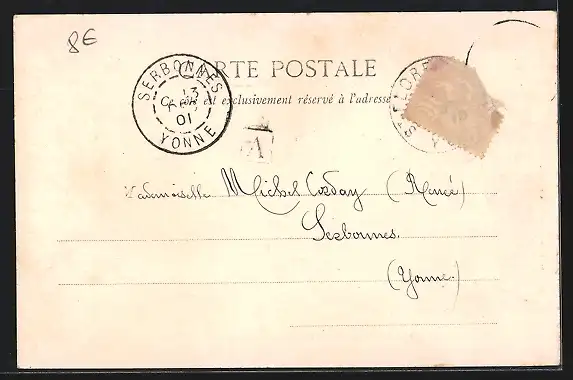 8€
CARTE POSTALE
Ce côté est exclusivement réservé à l'adresse
SERBONNES
13
01
YONNE
FLORE
A
Mademoiselle Michel Corday (Renée)
Serbonnes.
(Yonne)